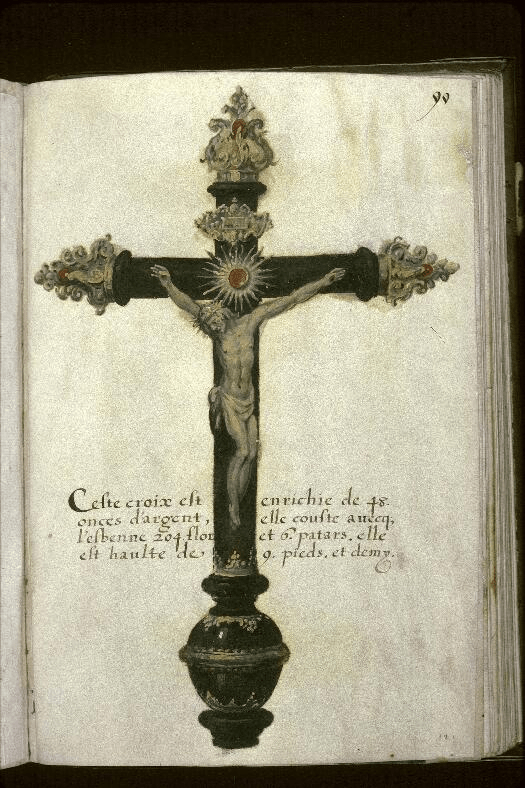 90
Ceste croix est enrichie de 48.
onces d'argent, elle couste auecq,
l'esbenne 204 flor et 6. patars. elle
est haulte de 9. pieds, et demy.